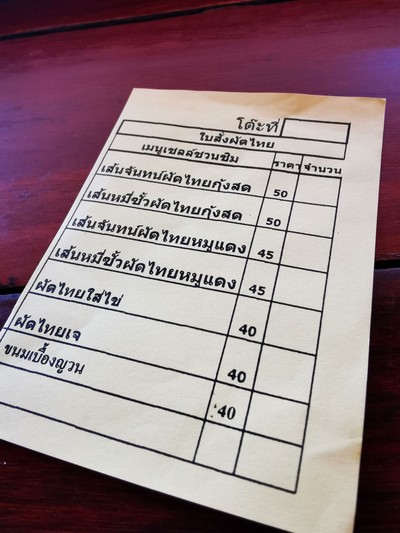 โต๊ะที่
ใบสั่งผัดไทย
เมนูเชลล์ชวนชิม ราคา จำนวน
เส้นจันทน์ผัดไทยกุ้งสด 50
เส้นหมี่ซั่วผัดไทยกุ้งสด 50
เส้นจันทน์ผัดไทยหมูแดง 45
เส้นหมี่ซั่วผัดไทยหมูแดง 45
ผัดไทยใส่ไข่ 40
ผัดไทยเจ 40
ขนมเบื้องญวน 40